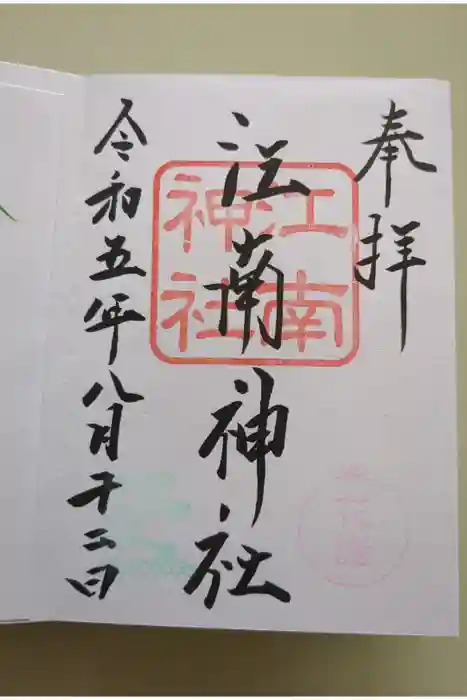 奉拝
江南神社
江南
神社
令和五年八月十二日